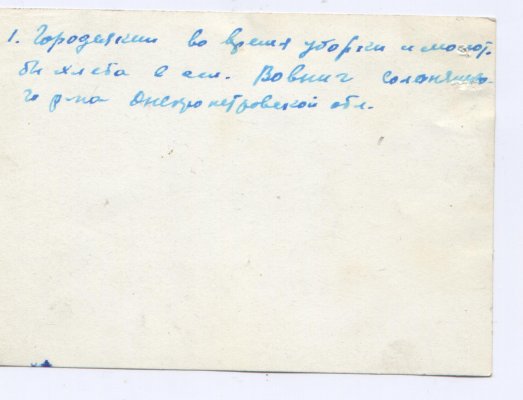 1. Городянкин во время уборки и молоть-
бы хлеба в ст. Вовниг Солонянско-
го р-на Днепропетровской обл.